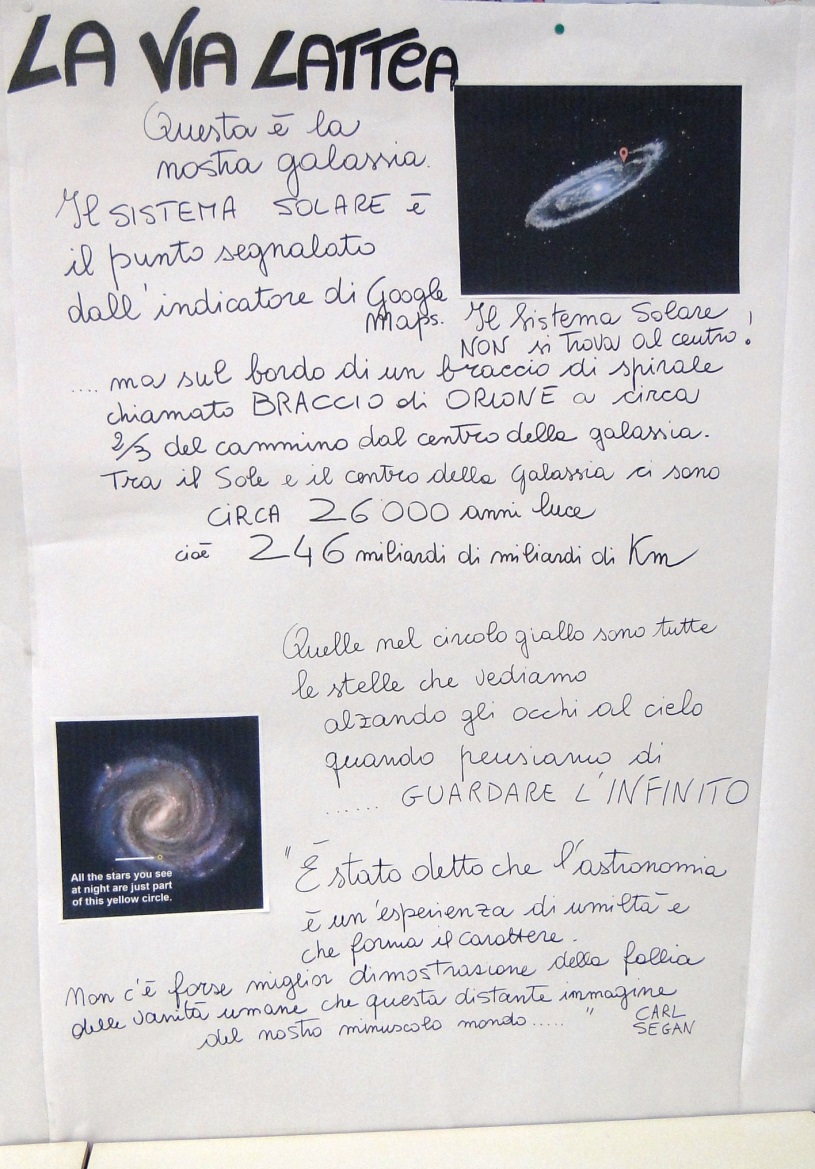 LA VIA LATTEA
Questa è la
nostra galassia.
Il SISTEMA SOLARE è
il punto segnalato
dall'indicatore di Google
Maps.
Il Sistema Solare
NON si trova al centro!
.... ma sul bordo di un braccio di spirale
chiamato BRACCIO di ORIONE a circa
2/3 del cammino dal centro della galassia.
Tra il Sole e il centro della Galassia ci sono
CIRCA 26'000 anni luce
cioè 246 miliardi di miliardi di Km
Quelle nel circolo giallo sono tutte
le stelle che vediamo
alzando gli occhi al cielo
quando pensiamo di
...... GUARDARE L'INFINITO
All the stars you see
at night are just part
of this yellow circle.
"È stato detto che l'astronomia
è un'esperienza di umiltà e
che forma il carattere.
Non c'è forse miglior dimostrazione della follia
delle vanità umane che questa distante immagine
del nostro minuscolo mondo..... "
CARL
SEGAN